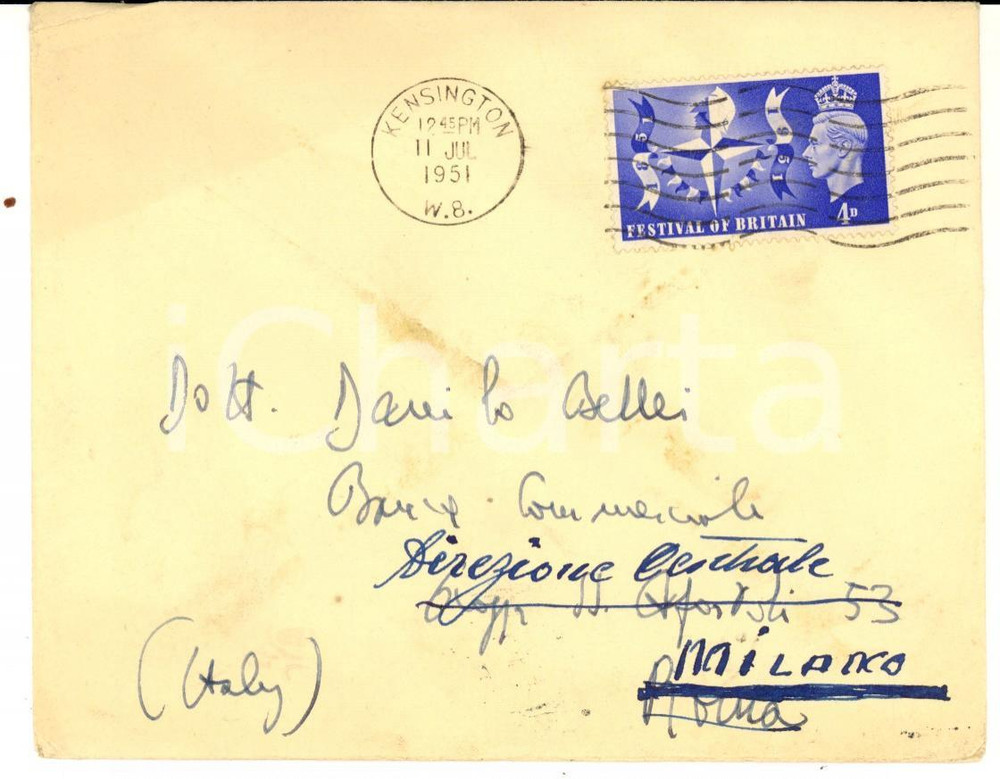 KENSINGTON
12 45 PM
11 JUL
1951
W.8.
1851 1951
FESTIVAL OF BRITAIN 4D
iCharta
Dott. Danilo Bellei
Banca Commerciale
Direzione Centrale
Apostoli 53
MILANO
Roma
(Italy)